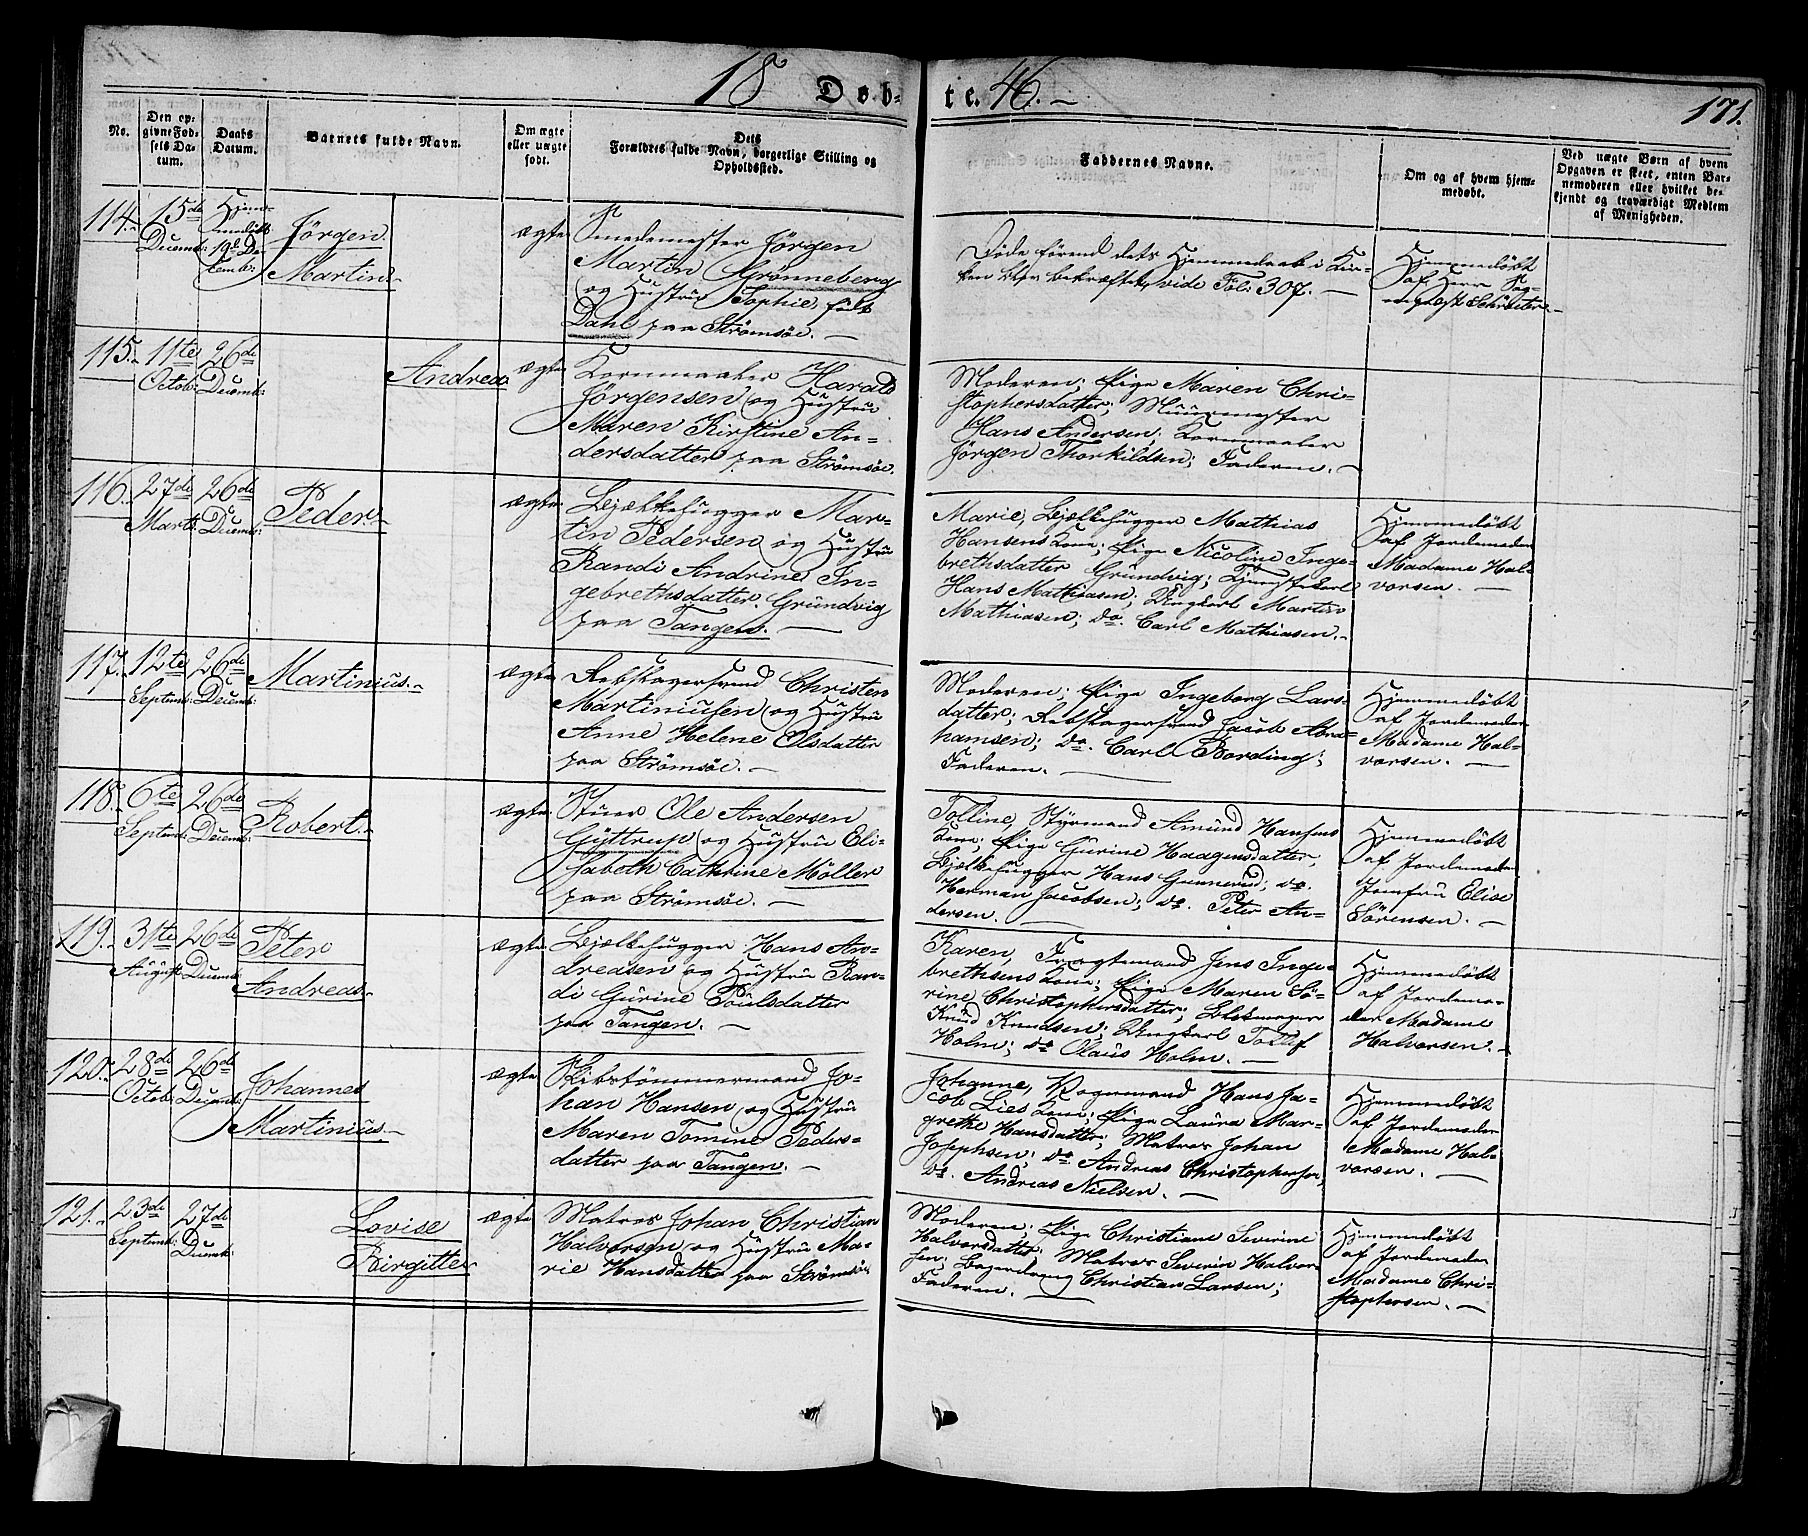 18 Døb-te. 46.-
171.
No.
Den opgivne Fødsels Datum.
Daabs Datum.
Barnets fulde Navn.
Om ægte eller uægte født.
Dets Forældres fulde Navn, borgerlige Stilling og Opholdssted.
Faddernes Navne.
Om og af hvem hjemmedøbt.
Ved uægte Børn af hvem Opgaven er skeet, enten Barnemoderen eller hvilket bekjendt og troværdigt Medlem af Menigheden.
114.
15de Decemb:
Hjemmedøbt 19de Decemb:
Jörgen
Martin-
ægte
Smedemester Jörgen
Martin Grönneberg
og Hustrü Sophie, født
Dahl paa Strömsöe. -
Døde förend dets Hjemmedaab i Kir-
ken blev bekræftet, vide Fol: 307. -
Hjemmedöbt
af Herr Sog-
nepræst Schröeter.-
115.
11te Octob:
26de Decemb:
Andrea-
ægte
Kornmaaler Harald
Jörgensen og Hustrü
Maren Kirstine An-
dersdatter paa Strömsöe.
Moderen; Pige Maren Chri-
stophersdatter; Müürmester
Hans Andersen; Kornmaaler
Jörgen Thorkildsen; Faderen. -
116.
27de Marts
26de Decemb:
Peder-
ægte
Bjælkehugger Mar-
tin Pedersen og Hustrü
Randi Andrine In-
gebrethsdatter Gründvig
paa Tangen. -
Marie, Bjælkehugger Mathias
Hansens Kone; Pige Nicoline Inge-
brethsdatter Gründvig; Ungkarl
Hans Mathiasen; Ungkarl Martin
Mathiasen; do. Carl Mathiasen.-
Hjemmedöbt
af Jordemoder
Madame Hal-
vorsen. -
117.
12te Septemb:
26de Decemb:
Martinius.-
ægte
Rebslagersvend Christen
Martiniusen og Hustrü
Anne Helene Olsdatter
paa Strömsöe. -
Moderen; Pige Ingeborg Lars-
datter; Rebslagersvend Jacob Abra-
hamsen; do. Carl Bording;
Faderen. -
Hjemmedöbt
af Jordemoder
Madame Hal-
vorsen. -
118.
6te Septemb:
26de Decemb:
Robert.-
ægte
Stuer Ole Andersen
Gyttrup og Hustrü Eli-
sabeth Cathrine Möller
paa Strömsöe. -
Tolline, Styrmand Amünd Hansens
Kone; Pige Gürine Haagensdatter,
Bjælkehugger Hans Gunnerud; do.
Herman Jacobsen; do. Peter An-
dersen. -
Hjemmedöbt
af Jordemoder
Jomfrü Elise
Sörensen. -
119.
31te August
26de Decemb:
Peter
Andreas-
ægte
Bjælkehugger Hans An-
dreasen og Hustrü Ran-
di Gürine Poülsdatter
paa Tangen. -
Karen, Fragtemand Jens Inge-
brethsens Kone; Pige Maren Sö-
rine Christophersdatter; Blokmager
Knüd Knudsen; Ungkarl Tollef
Holm; do Olaüs Holm. -
Hjemmedöbt
af Jordemo-
der Madame
Halvorsen. -
120.
28de Octob:
26de Decemb:
Johannes
Martinius-
ægte
Skibstömmermand Jo-
han Hansen og Hustrü
Maren Tomine Peders-
datter paa Tangen. -
Johanne, Hans Ja-
cob Lies Kone; Pige Laüra Mar-
grethe Hansdatter; Matros Johan
Josephsen; do Andreas Christophersen,
do. Andreas Nielsen. -
Hjemmedöbt
af Jordemoder
Madame Hal-
vorsen. -
121.
23de Septemb:
27de Decemb:
Lovise
Birgitte-
ægte
Matros Johan Christian
Halvorsen og Hustrü Ma-
rie Hansdatter paa Strömsöe
Moderen; Pige Christiane Severine
Halvorsdatter; Matros Severin Halvor-
sen; Christian Larsen;
Faderen. -
Hjemmedöbt
af Jordemoder
Madame Chri-
stophersen. -